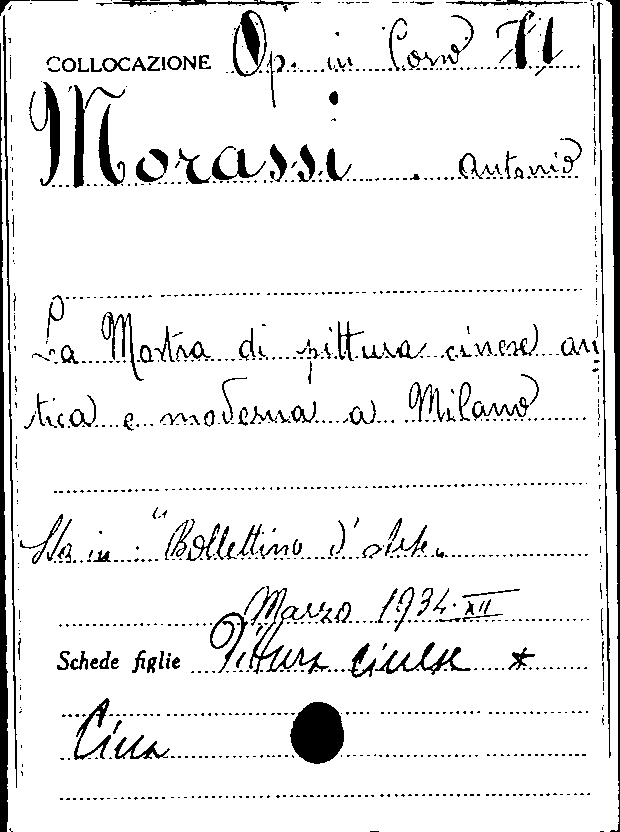 COLLOCAZIONE Op. in Corso 71
Morassi. Antonio
La Mostra di pittura cinese an
tica e moderna a Milano
Sta in: "Bollettino d'Arte"
Marzo 1934-XII
Schede figlie Pittura cinese *
Cina